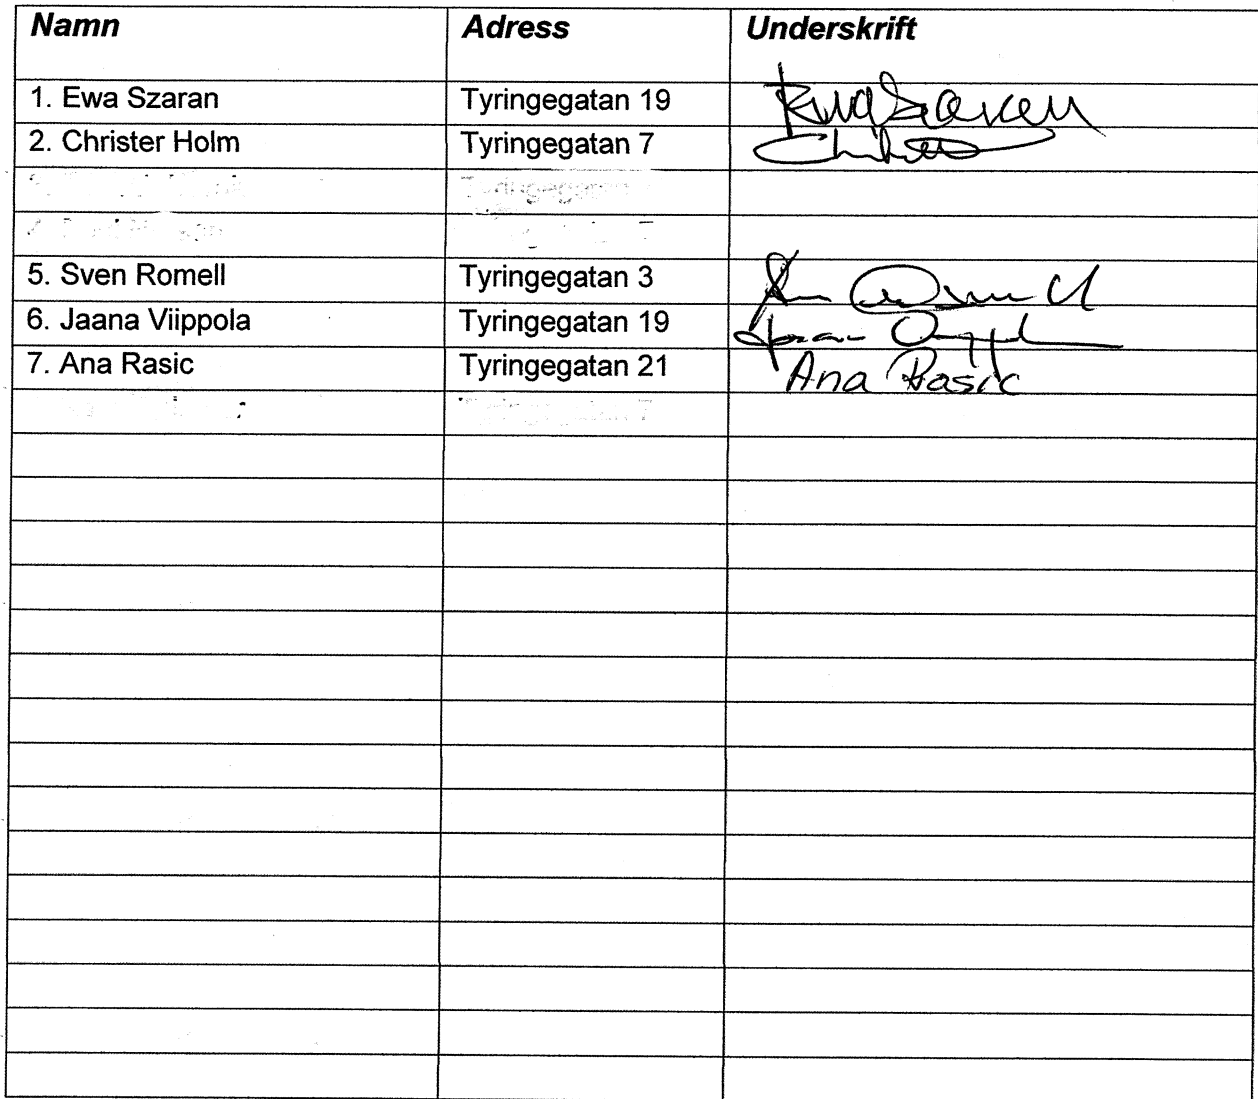 Namn Adress Underskrift
1. Ewa Szaran Tyringegatan 19 Ewa Szaran
2. Christer Holm Tyringegatan 7
5. Sven Romell Tyringegatan 3
6. Jaana Viippola Tyringegatan 19
7. Ana Rasic Tyringegatan 21 Ana Rasic